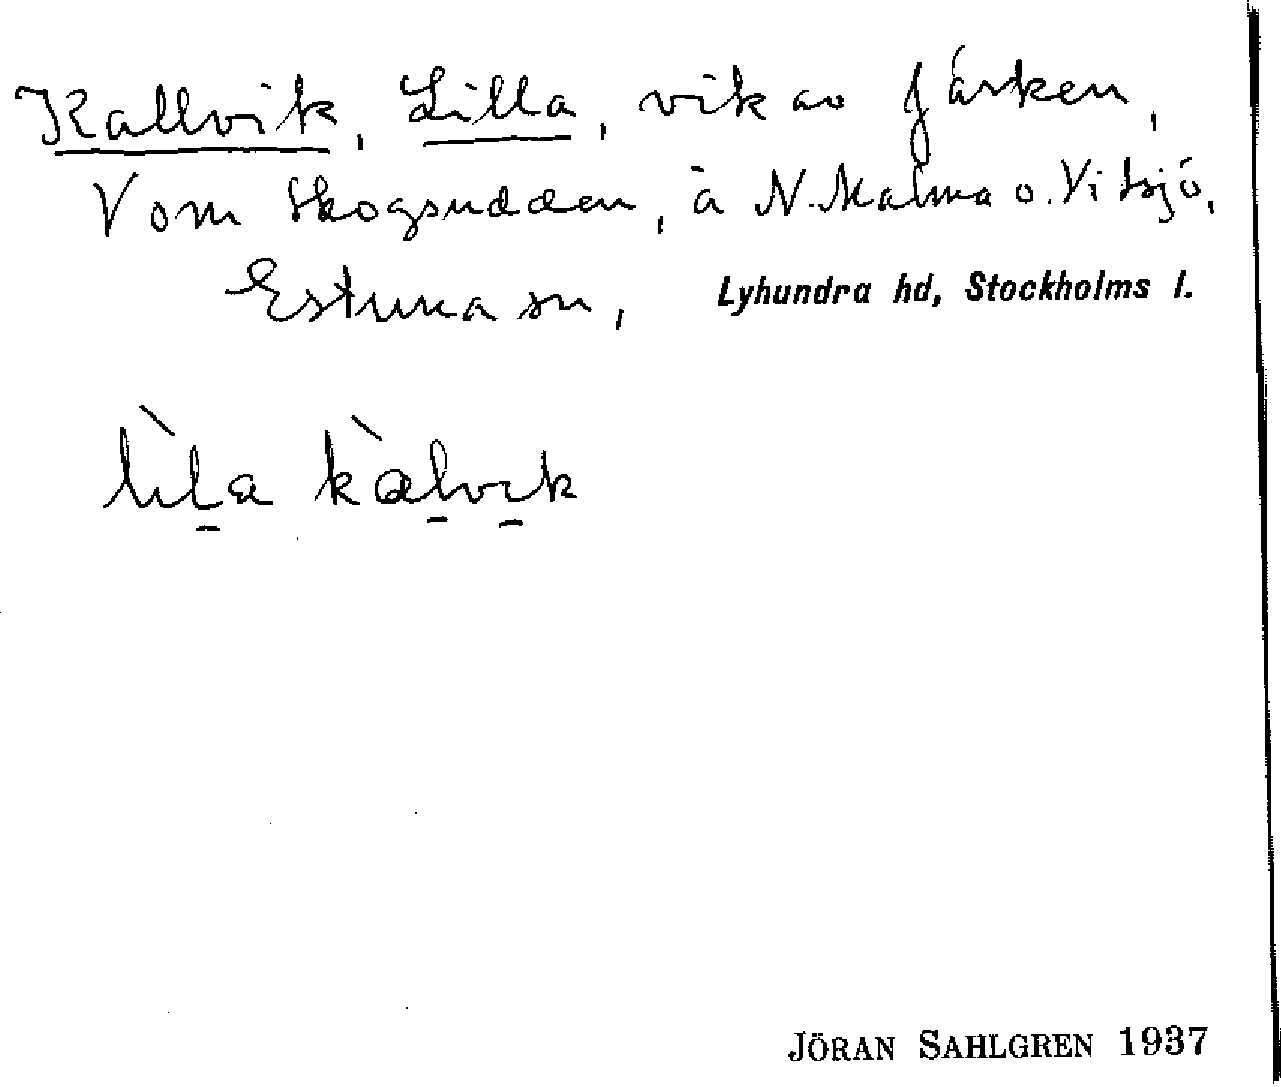 Kallvik, Lilla, vik av Järken,
V om Skogsudden, å N. Malma o. Vitsjö,
Estuna sn, Lyhundra hd, Stockholms l.
lìl̠a kàl̠vı̠k
JÖRAN SAHLGREN 1937